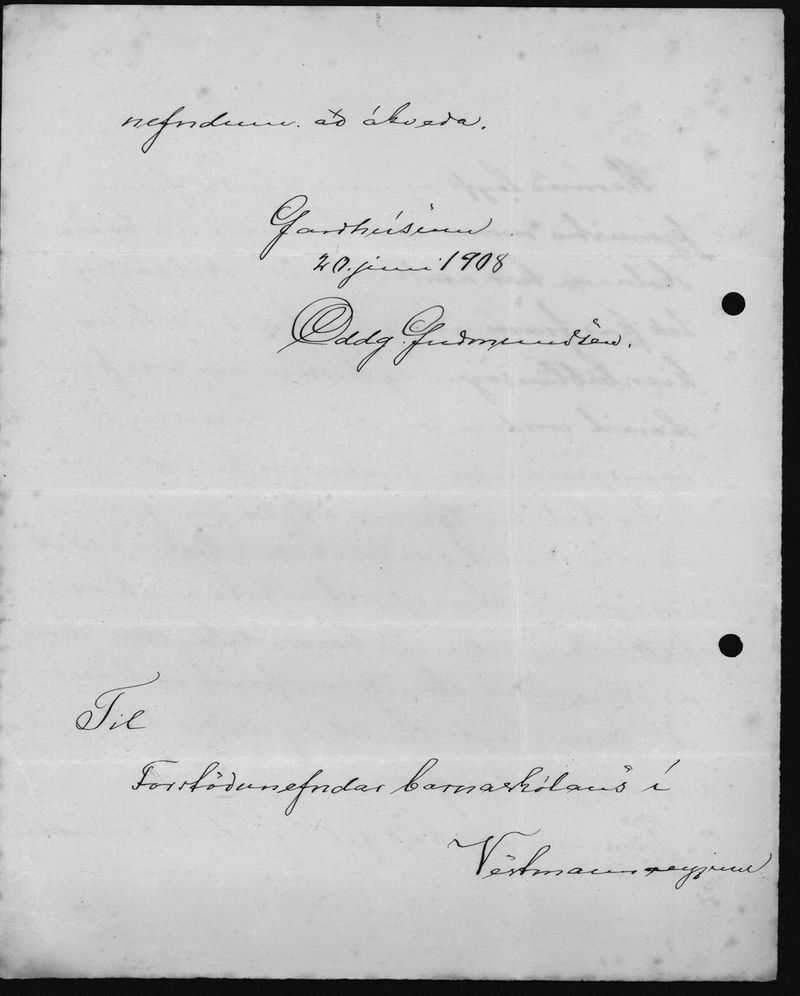 nefndum að ákveða.
Garðhúsum
20. júni 1908
Oddg. Guðmundsen.
Til
Forstöðunefndar barnaskólans í
Vestmannaeyjum